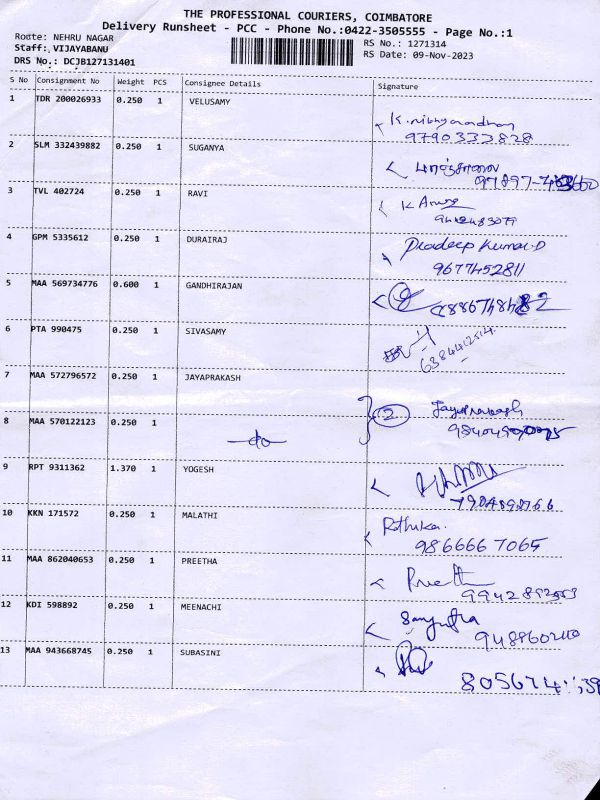 THE PROFESSIONAL COURIERS, COIMBATORE
Delivery Runsheet - PCC - Phone No.:0422-3505555 - Page No.:1
Route: NEHRU NAGAR
RS No.: 1271314
Staff: VIJAYABANU
RS Date: 09-Nov-2023
DRS No.: DCJB127131401
S No Consignment No Weight PCS Consignee Details Signature
1 TDR 200026933 0.250 1 VELUSAMY
9790332828
2 SLM 332439882 0.250 1 SUGANYA
3 TVL 402724 0.250 1 RAVI
K
4 GPM 5335612 0.250 1 DURAIRAJ Pradeep Kumar.D
9677452811
5 MAA 569734776 0.600 1 GANDHIRAJAN
6 PTA 990475 0.250 1 SIVASAMY
7 MAA 572796572 0.250 1 JAYAPRAKASH
8 MAA 570122123 0.250 1 do 2 Jayaprakash
9 RPT 9311362 1.370 1 YOGESH
10 KKN 171572 0.250 1 MALATHI
9866667065
11 MAA 862040653 0.250 1 PREETHA Preetha
12 KDI 598892 0.250 1 MEENACHI
13 MAA 943668745 0.250 1 SUBASINI